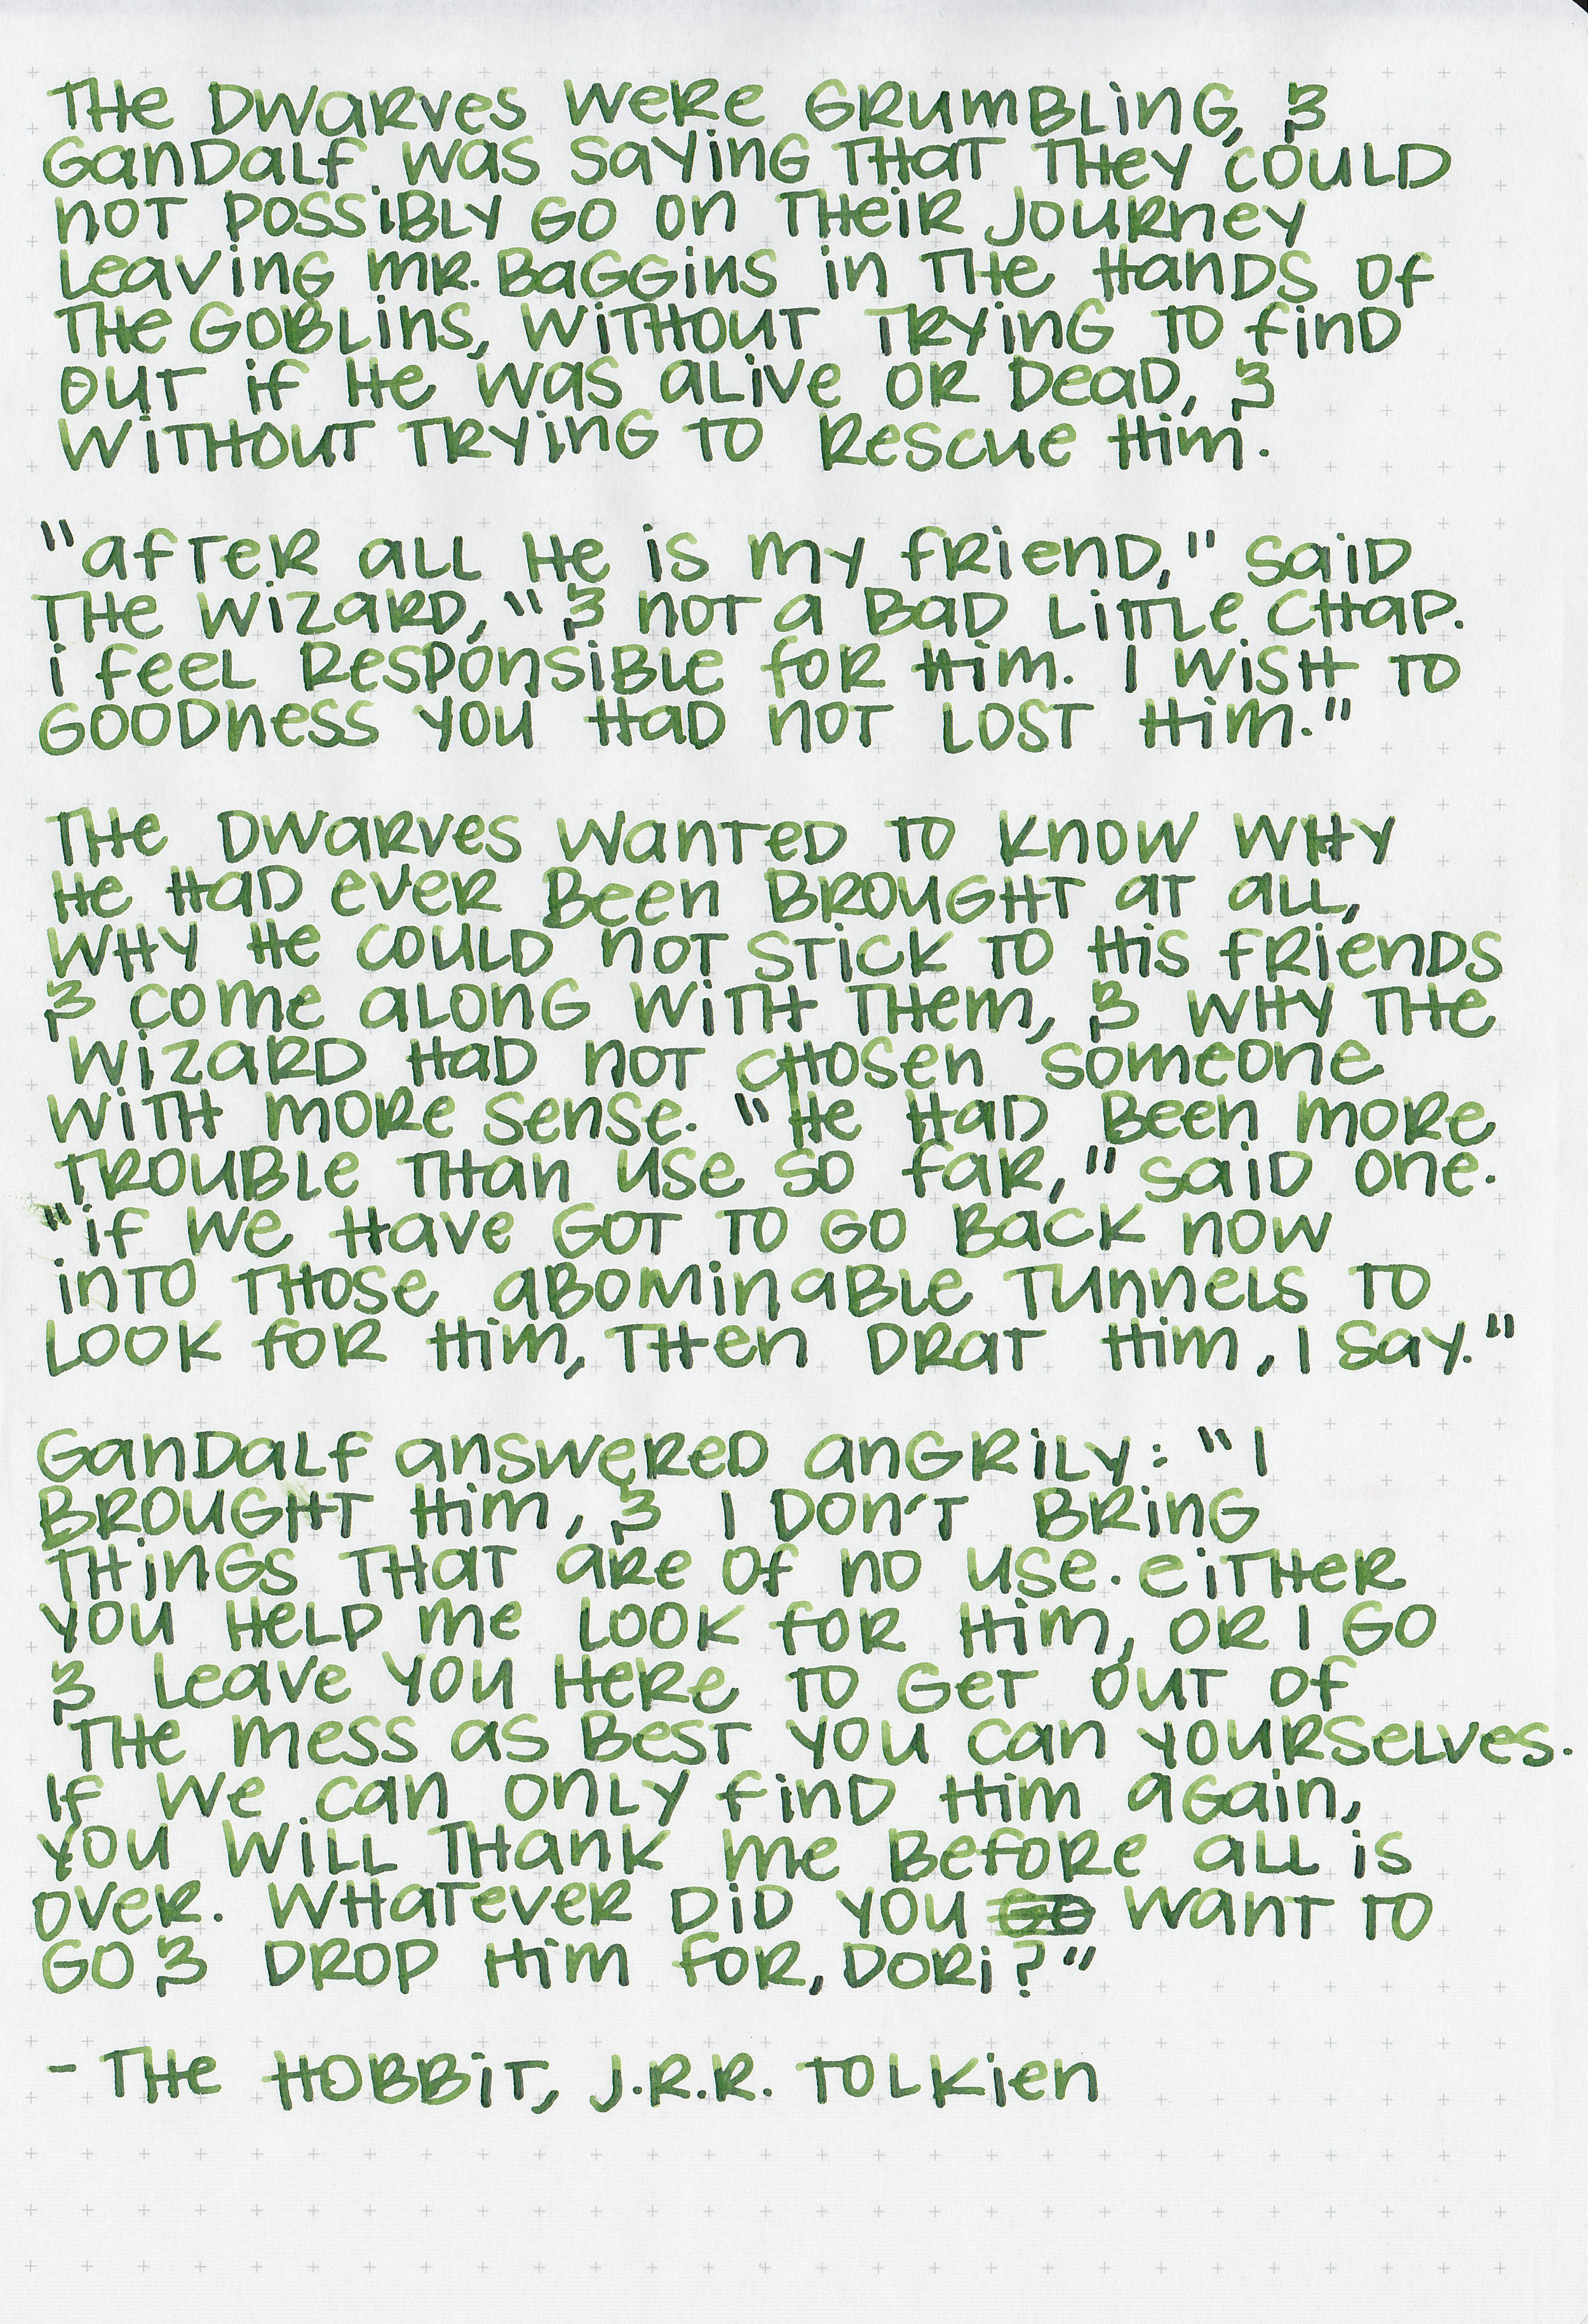 The Dwarves were grumbling, &
Gandalf was saying that they could
not possibly go on their journey
leaving Mr. Baggins in the hands of
the goblins, without trying to find
out if he was alive or dead, &
without trying to rescue him.

"After all he is my friend," said
the wizard, "& not a bad little chap.
I feel responsible for him. I wish to
goodness you had not lost him."

The dwarves wanted to know why
he had ever been brought at all,
why he could not stick to his friends
& come along with them, & why the
wizard had not chosen someone
with more sense. "He had been more
trouble than use so far," said one.
"If we have got to go back now
into those abominable tunnels to
look for him, then drat him, I say."

Gandalf answered angrily: "I
brought him, & I don't bring
things that are of no use. Either
you help me look for him, or I go
& leave you here to get out of
the mess as best you can yourselves.
If we can only find him again,
you will thank me before all is
over. Whatever did you go want to
go & drop him for, Dori?"

- The Hobbit, J.R.R. Tolkien